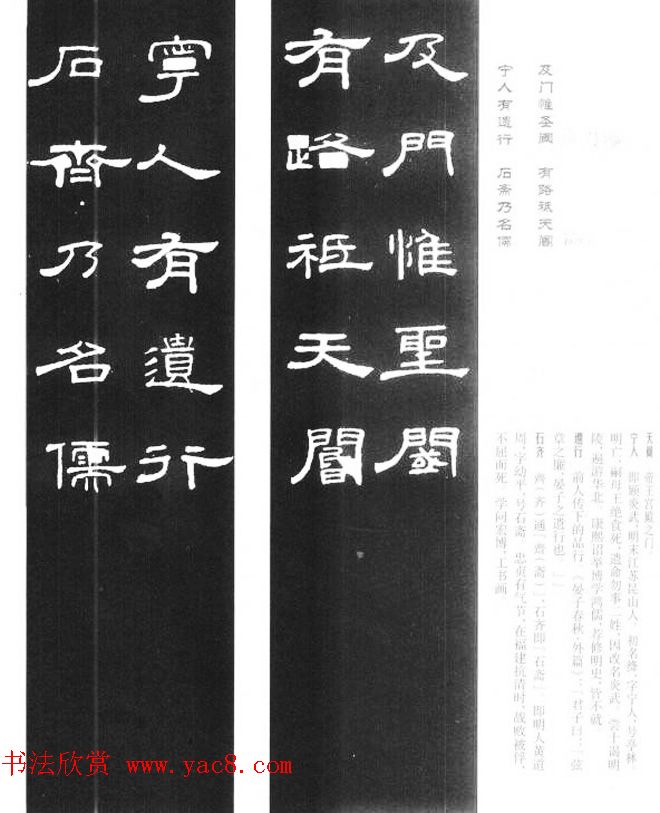 及門惟聖閾
有路祗天閽
寧人有遺行
石齊乃名儒
及门惟圣阈　有路祗天阍
宁人有遗行　石斋乃名儒
天阍　帝王宫殿之门。
宁人　即顾炎武，明末江苏昆山人，初名绛，字宁人，号亭林。
明亡，嗣母王绝食死，遗命勿事二姓，因改名炎武，尝十谒明
陵，遍游华北。康熙诏举博学鸿儒，荐修明史，皆不就。
遗行　前人传下的品行。《晏子春秋·外篇》：「君子曰：『弦
章之廉，晏子之遗行也。』」
石齐　齊（齐）通「齋（斋）」，石齐即「石斋」，即明人黄道
周，字幼平，号石斋。忠贞有气节，在福建抗清时，战败被俘，
不屈而死。学问宏博，工书画
书法欣赏 www.yac8.com